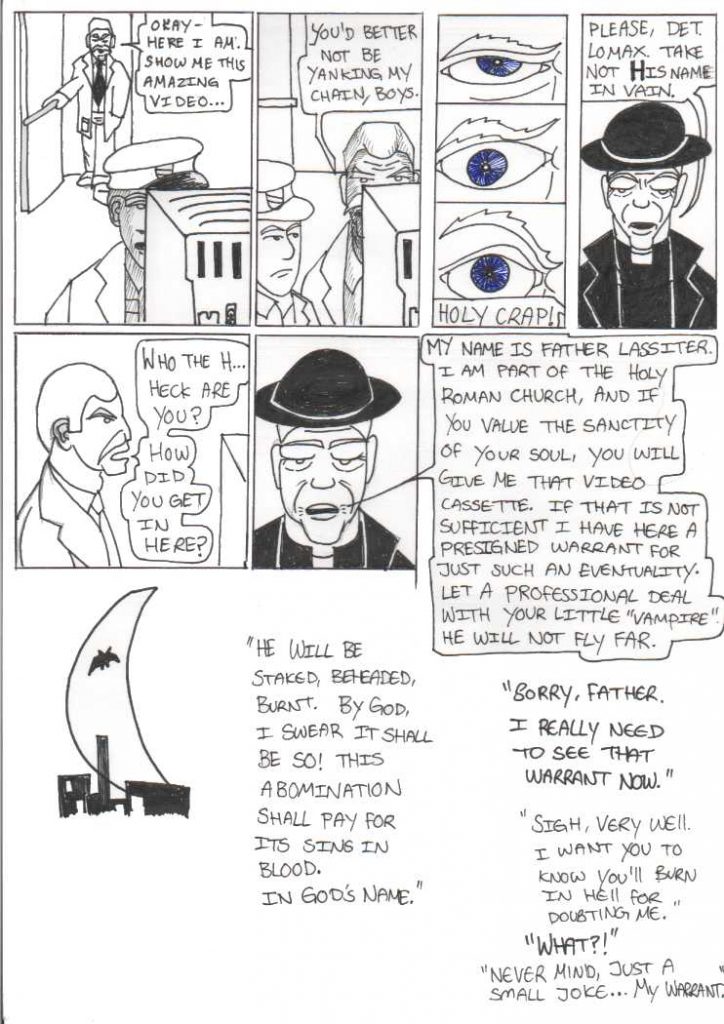 OKAY-
HERE I AM.
SHOW ME THIS
AMAZING
VIDEO...
YOU'D BETTER
NOT BE
YANKING MY
CHAIN, BOYS.
HOLY CRAP!
PLEASE, DET.
LOMAX. TAKE
NOT HIS NAME
IN VAIN.
WHO THE H...
HECK ARE
YOU?
HOW
DID
YOU GET
IN
HERE?
MY NAME IS FATHER LASSITER.
I AM PART OF THE HOLY
ROMAN CHURCH, AND IF
YOU VALUE THE SANCTITY
OF YOUR SOUL, YOU WILL
GIVE ME THAT VIDEO
CASSETTE. IF THAT IS NOT
SUFFICIENT I HAVE HERE A
PRESIGNED WARRANT FOR
JUST SUCH AN EVENTUALITY.
LET A PROFESSIONAL DEAL
WITH YOUR LITTLE "VAMPIRE".
HE WILL NOT FLY FAR.
"HE WILL BE
STAKED, BEHEADED,
BURNT. BY GOD,
I SWEAR IT SHALL
BE SO! THIS
ABOMINATION
SHALL PAY FOR
ITS SING IN
BLOOD.
IN GOD'S NAME."
"SORRY, FATHER.
I REALLY NEED
TO SEE THAT
WARRANT NOW."
"SIGH, VERY WELL.
I WANT YOU TO
KNOW YOU'LL BURN
IN HELL FOR
DOUBTING ME."
"WHAT?!"
"NEVER MIND, JUST A
SMALL JOKE... MY WARRANT."